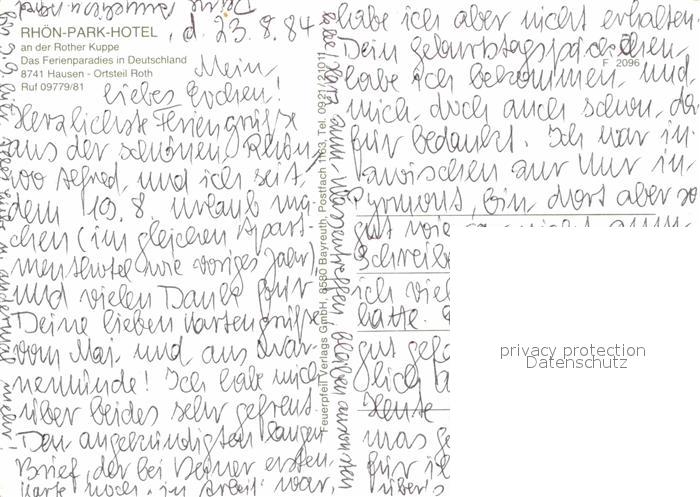 RHÖN-PARK-HOTEL
an der Rother Kuppe
Das Ferienparadies in Deutschland
8741 Hausen - Ortsteil Roth
Ruf 09779/81
, d. 23.8.84
Mein
liebes Evchen!
Herzlichste Feriengrüße
aus der schönen Rhön,
wo Alfred, und ich seit
dem 19.8 Urlaub ma-
chen (im gleichen Apart-
menthotel wie voriges Jahr)
und vielen Dank für
Deine lieben Kartengrüße
vom Mai, und aus War-
nemünde! Ich habe mich
über beides sehr gefreut.
Den angekündigten langen
Brief, der bei Deiner ersten
Karte noch "in Arbeit" war,
habe ich aber nicht erhalten.
Dein Geburtstagspäckchen,
habe ich bekommen, und
mich, doch auch schon, da-
für bedankt. Ich war in
zwischen zur Kur in
Pyrmont, bin dort aber so
gut wie
Schreibe
ich viel
hatte.
gut gefa
lich
Heute
was ge
für ih
über s
F 2096
Feuerpfeil Verlags GmbH, 8580 Bayreuth, Postfach 1163, Tel. 0921/21011
privacy protection
Datenschutz